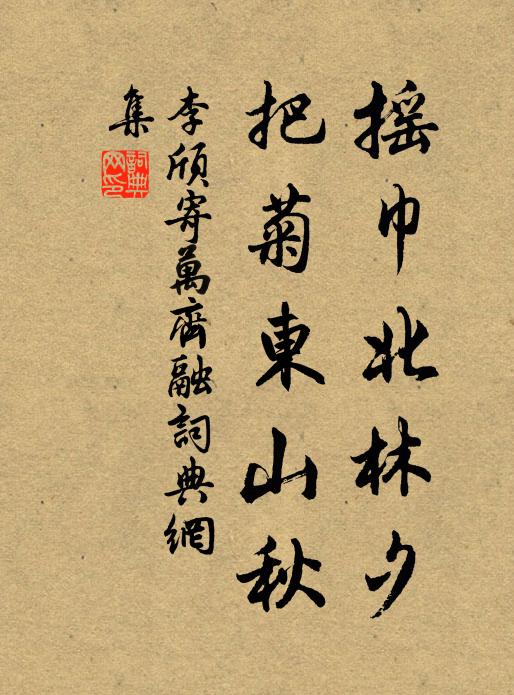 摇巾北林夕
把菊東山秋
李頎寄萬齊融詞典網
集
詞典
网印